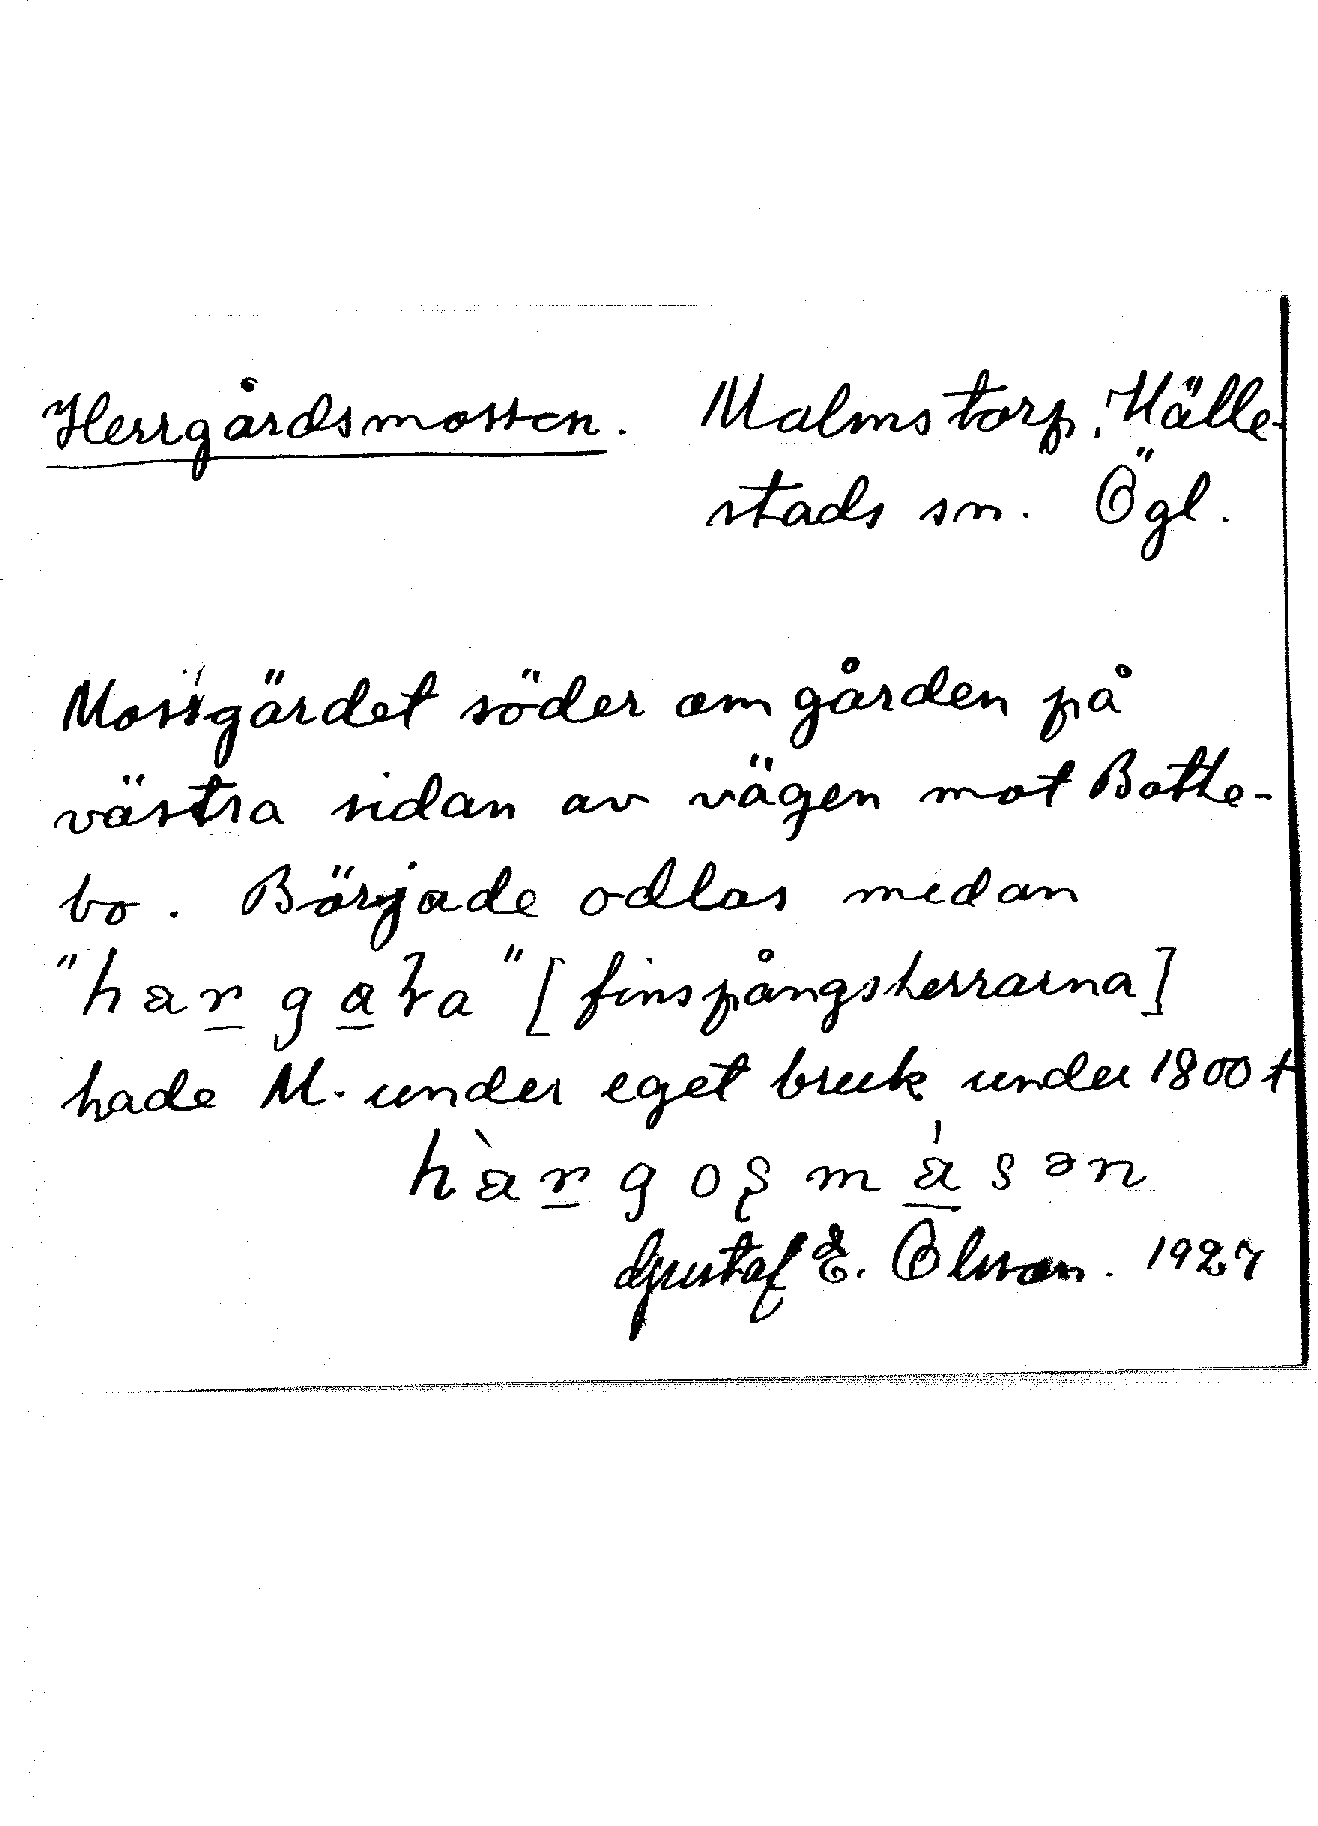 Herrgårdsmossen. Malmstorp, Hälle-
stads sn. Ögl.
Mossgärdet söder om gården på
västra sidan av vägen mot Botte-
bo. Började odlas medan
[finspångsherrarna]
hade M. under eget bruk under 1800 t
Gustaf E. Olsson. 1927